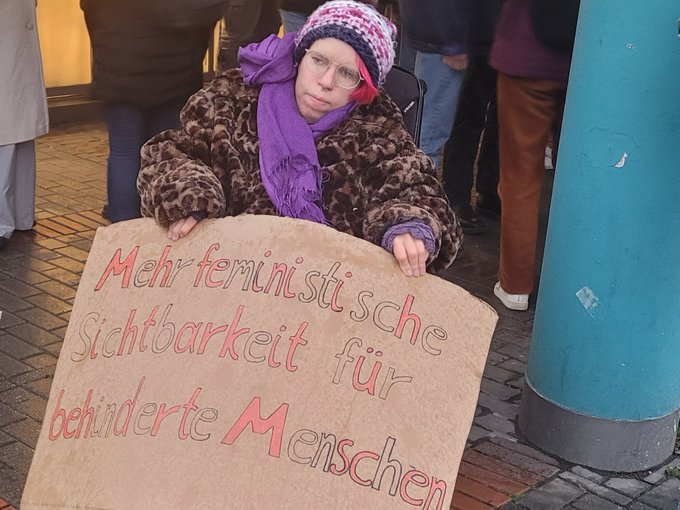 Mehr feministische
Sichtbarkeit für
behinderte Menschen